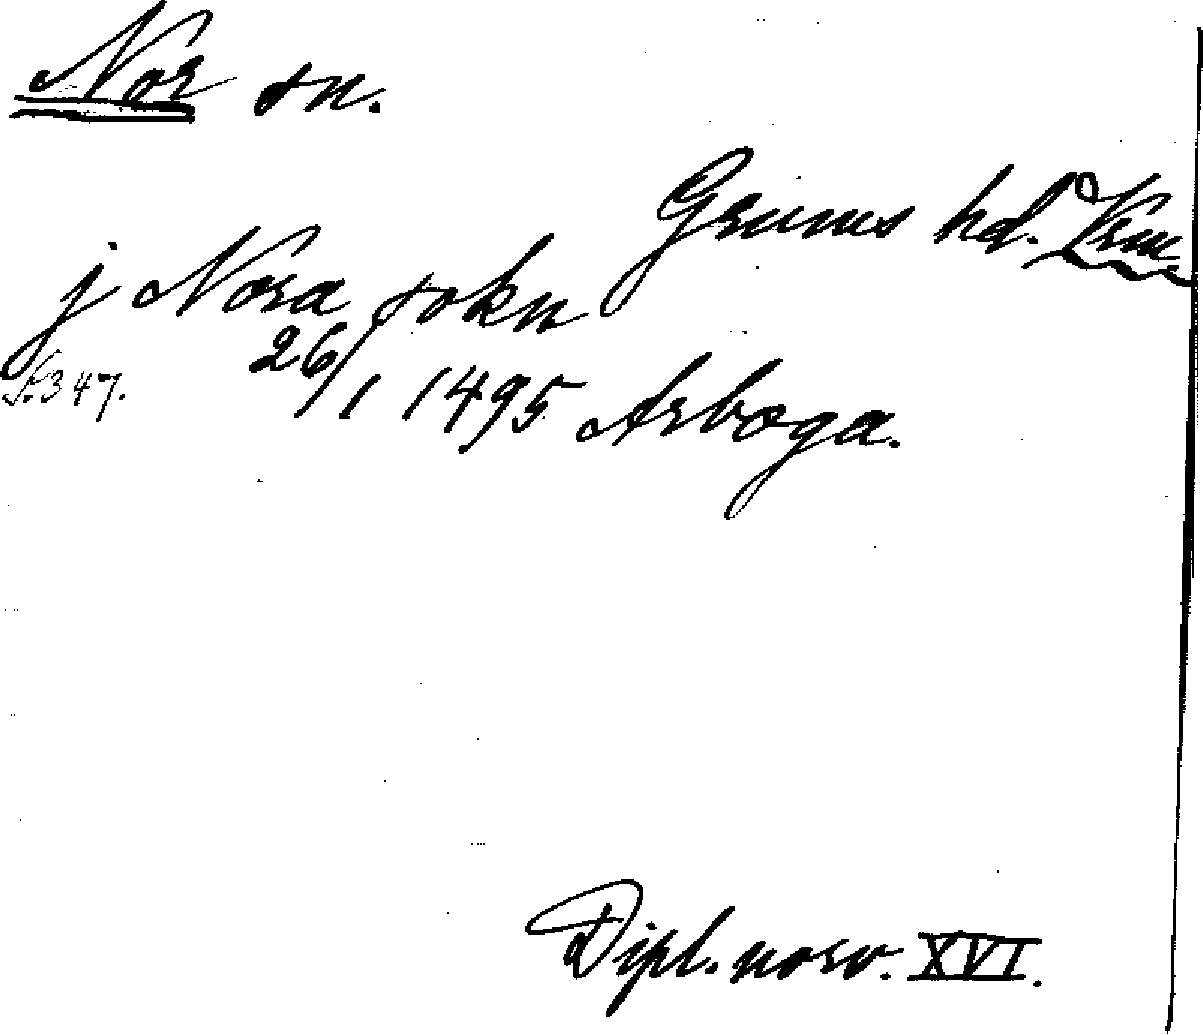 Nor sn.
Grums hd. Vrm.
j Nora sokn
S. 347. 26/1 1495 Arboga.
Dipl. norv. XVI.